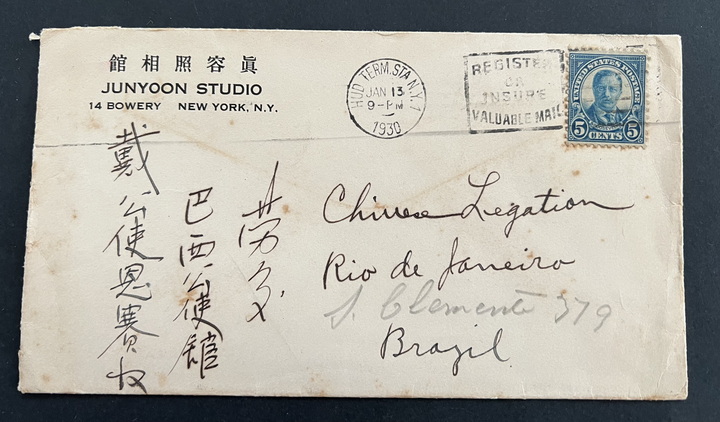 眞容照相館
JUNYOON STUDIO
14 BOWERY NEW YORK, N.Y.
HUD TERM.STA N.Y. 7
JAN 13
9-PM
1930
REGISTER
OR
INSURE
VALUABLE MAIL
UNITED STATES POSTAGE
5 CENTS 5
巴西公使館
戴公使恩賽收
Chinese Legation
Rio de Janeiro
S. Clemente 379
Brazil